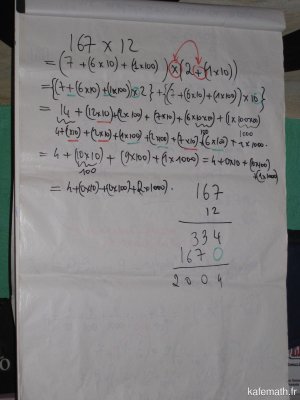 167 × 12
= (7 + (6×10) + (1×100)) × (2 + (1×10))
= {(7 + (6×10) + (1×100)) × 2} + {(7 + (6×10) + (1×100)) × 10}
= 14 + (12×10) + (2×100) + (7×10) + (6×10×10) + (1×100×10)
100 1000
4 + (1×10) + (2×10) + (1×100) + (2×100) + (7×10) + 6(×100) + 1×1000
= 4 + (10×10) + (9×100) + (1×1000) = 4 + 0×10 + (10×100)
100 + (1×1000)
= 4 + (0×10) + (0×100) + (2×1000).
167
12
334
1670
2004
kafemath.fr